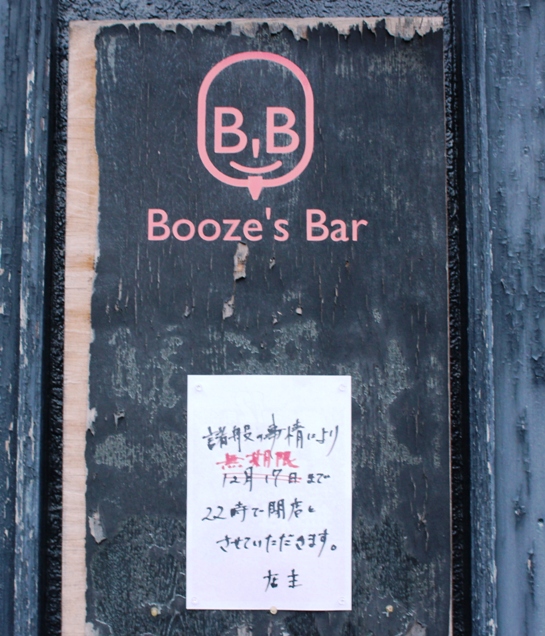 B B
Booze's Bar
諸般の事情により
無期限
12月17日まで
22時で閉店と
させていただきます。
店主